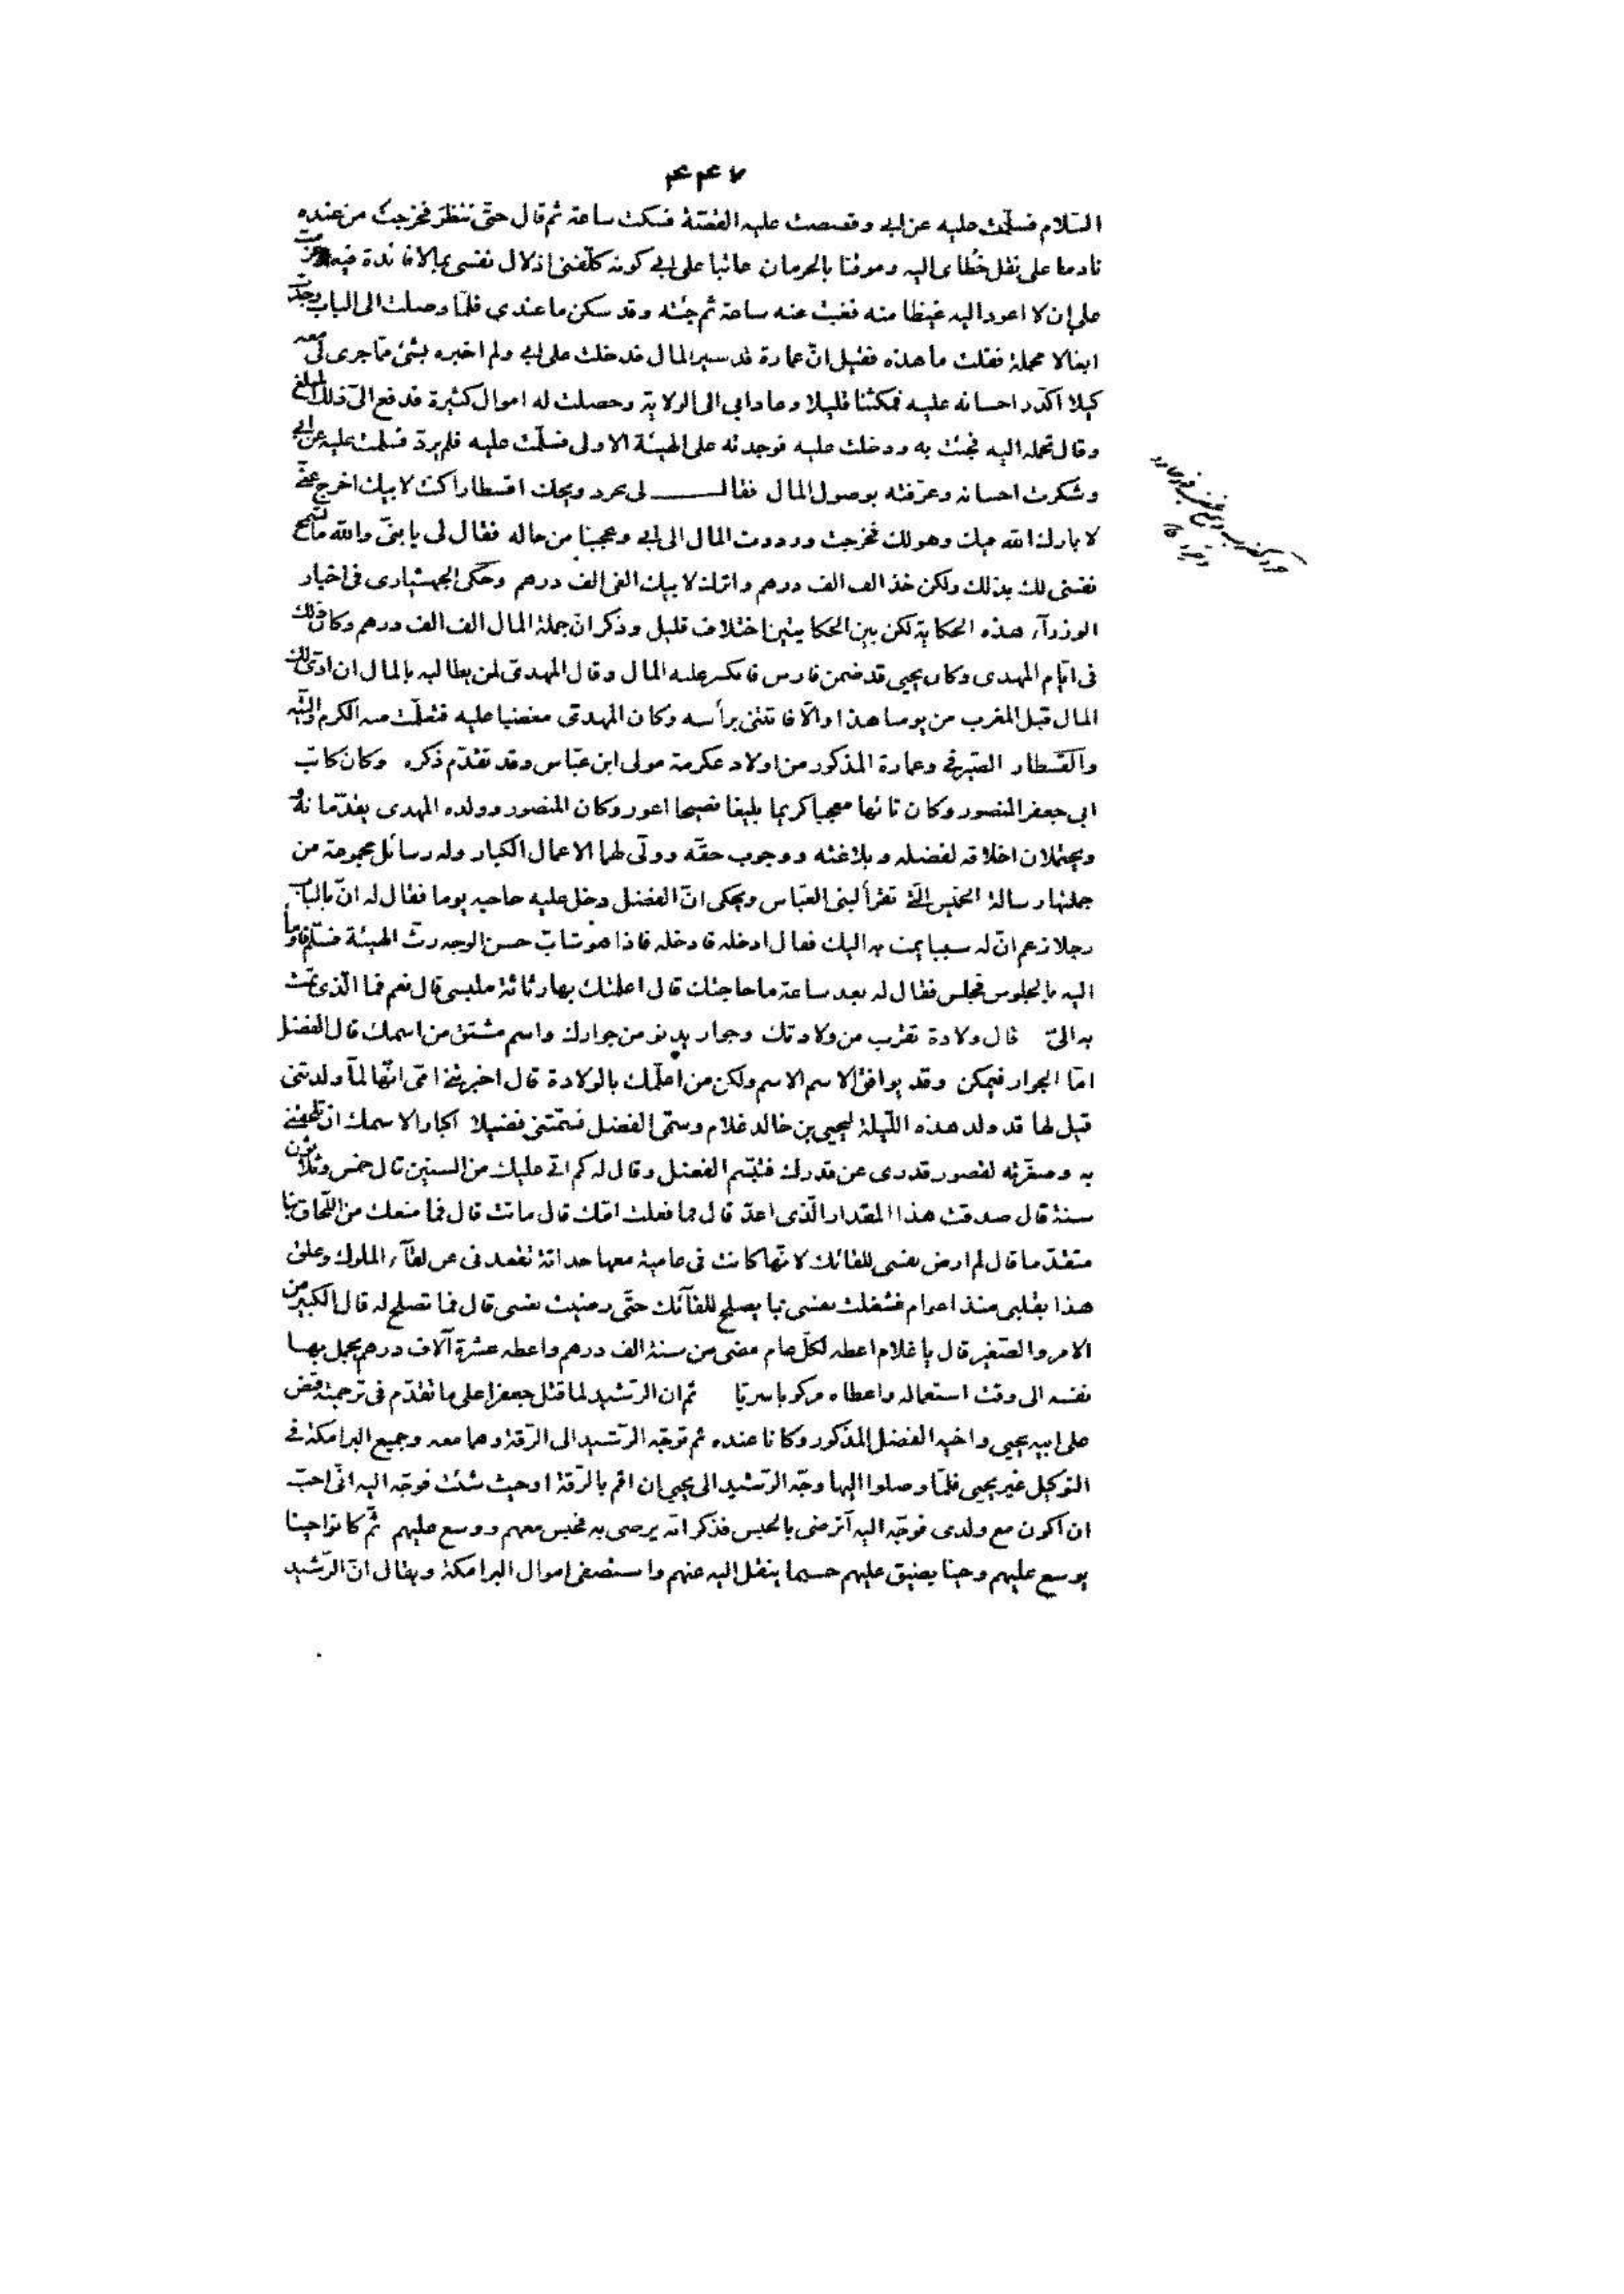 ٤٤٧
السّلام فسلّمت عليه عن ابى وقصصت عليه القصّة فسكت ساعة ثم قال حتّى ننظر فخرجت من عنده
نادما على نقل خطاى اليه وموقنا بالحرمان عاتبا على ابى كونه كلّفنى اذلال نفسى بما لا فائدة فيه وعزمت
على ان لا اعود اليه غيظا منه فغبت عنه ساعة ثم جئته وقد سكن ما عندى فلمّا وصلت الى الباب وجدت
ابغالا محملة فقلت ما هذه فقيل انّ عمارة قد سير المال فدخلت على ابى ولم اخبره بشئ ممّا جرى لى معه
كيلا اكدّر احسانه عليه فمكثنا قليلا وعاد ابى الى الولاية وحصلت له اموال كثيرة فدفع الىّ ذلك المبلغ
وقال تحمله اليه فجئت به ودخلت عليه فوجدته على الهيئة الاولى فسلّمت عليه فلم يردّ فسلمت عليه عن ابى
وشكرت احسانه وعرّفته بوصول المال فقال لى بحرد ويحك اقسطارا كنت لابيك اخرج عنّى
لا بارك الله فيك وهو لك فخرجت ورددت المال الى ابى وعجبنا من حاله فقال لى يا بنىّ والله ما تسمح
نفسى لك بذلك ولكن خذ الف الف درهم واترك لابيك الفى الف درهم وحكى الجهشيارى فى اخبار
الوزرآء هذه الحكاية لكن بين الحكايتين اختلاف قليل وذكر انّ جملة المال الف الف درهم وكان ذلك
فى ايّام المهدى وكان يحيى قد ضمن فارس فانكسر عليه المال وقال المهدىّ لمن يطالبه بالمال ان ادّى لك
المال قبل المغرب من يومنا هذا والّا فاتنى برأسه وكان المهدىّ مغضبا عليه فتعلّمت منه الكرم والتيه
والقسطار الصّيرفى وعمارة المذكور من اولاد عكرمة مولى ابن عبّاس وقد تقدّم ذكره وكان كاتب
ابى جعفر المنصور وكان تائها معجبا كريما بليغا فصيحا اعور وكان المنصور وولده المهدى يقدّمانه
ويحتملان اخلاقه لفضله وبلاغته ووجوب حقّه وولّى لهما الاعمال الكبار وله رسائل مجموعة من
جملتها رسالة الخميس الّتى تقرأ لبنى العبّاس ويحكى انّ الفضل دخل عليه حاجبه يوما فقال له انّ بالباب
رجلا زعم انّ له سببا يمت به اليك فقال ادخله فادخله فاذا هو شابّ حسن الوجه رثّ الهيئة فسلّم فاومأ
اليه بالجلوس فجلس فقال له بعد ساعة ما حاجتك قال اعلمتك بها رثاثة ملبسى قال نعم فما الّذى تمت
به الىّ قال ولادة تقرب من ولادتك وجوار يدنو من جوارك واسم مشتق من اسمك قال الفضل
امّا الجوار فيمكن وقد يوافق الاسم الاسم ولكن من اعلمك بالولادة قال اخبرتنى امّى انّها لمّا ولدتنى
قيل لها قد ولد هذه اللّيلة ليحيى بن خالد غلام وسمّى الفضل فسمّتنى فضيلا اكبارا لاسمك ان تلحقنى
به وصغّرته لقصور قدرى عن قدرك فتبسّم الفضل وقال له كم اتى عليك من السنين قال خمس وثلاثون
سنة قال صدقت هذا المقدار الّذى اعدّ قال فما فعلت امّك قال ماتت قال فما منعك من اللّحاق بنا
متقدّما قال لم ارض نفسى للقائك لانّها كانت فى عامية معها حداثة تقعدنى عن لقآء الملوك وعلق
هذا بقلبى منذ اعوام فشغلت نفسى بما يصلح للقآئك حتّى رضيت نفسى قال فما تصلح له قال الكبير من
الامر والصّغير قال يا غلام اعطه لكلّ عام مضى من سنه الف درهم واعطه عشرة آلاف درهم يجمل بها
نفسه الى وقت استعماله واعطاه مركوبا سريّا ثم ان الرّشيد لما قتل جعفرا على ما تقدّم فى ترجمته قبض
على ابيه يحيى واخيه الفضل المذكور وكانا عنده ثم توجّه الرّشيد الى الرّقة وهما معه وجميع البرامكة فى
التوكيل غير يحيى فلمّا وصلوا اليها وجّه الرّشيد الى يحيى ان اقم بالرّقة او حيث شئت فوجّه اليه انّى احبّ
ان اكون مع ولدى فوجّه اليه أترضى بالحبس فذكر انّه يرضى به فحبس معهم ووسع عليهم ثمّ كانوا حينا
يوسع عليهم وحينا يضيق عليهم حسبما ينقل اليه عنهم واستصفى اموال البرامكة ويقال انّ الرّشيد